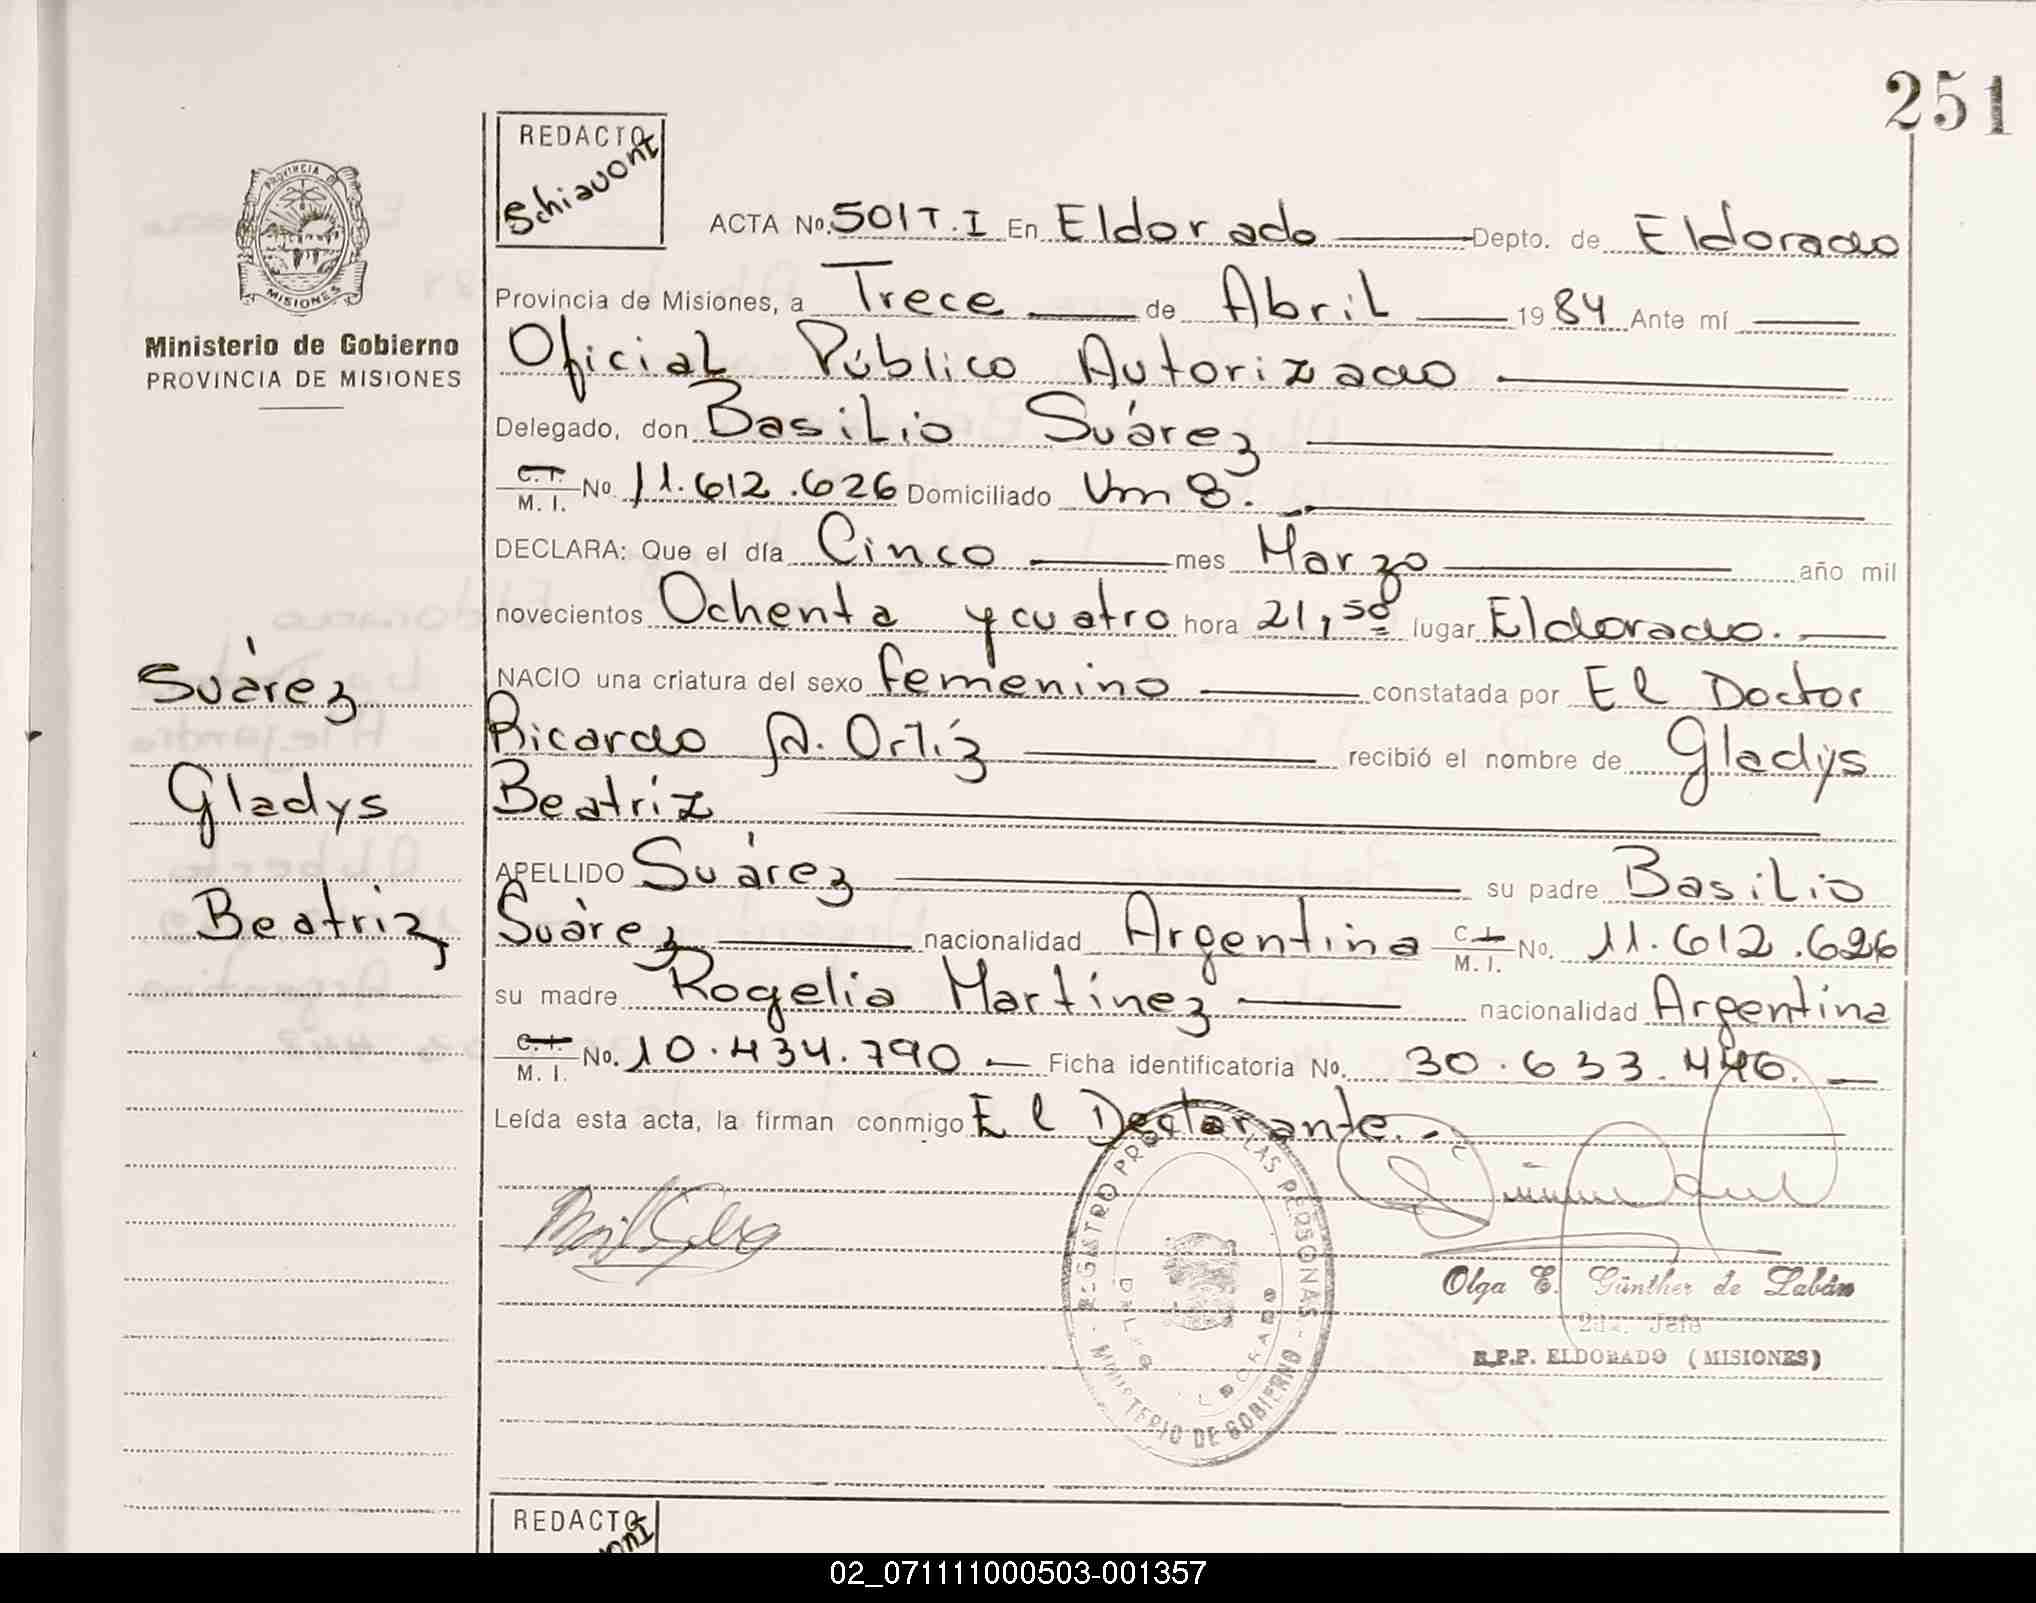 251
REDACTO
Schiavoni
PROVINCIA DE
MISIONES
Ministerio de Gobierno
PROVINCIA DE MISIONES
ACTA No. 501 T.I En Eldorado Depto. de Eldorado
Provincia de Misiones, a Trece de Abril 1984 Ante mí
Oficial Público Autorizado
Delegado, don Basilio Suárez
C.I. M. I. No 11.612.626 Domiciliado Km 8.
DECLARA: Que el día Cinco mes Marzo año mil
novecientos Ochenta y cuatro hora 21,50 lugar Eldorado.
NACIO una criatura del sexo femenino constatada por El Doctor
Ricardo A. Ortíz recibió el nombre de Gladys
Beatriz
APELLIDO Suárez su padre Basilio
Suárez nacionalidad Argentina C.I. M. I. No. 11.612.626
su madre Rogelia Martínez nacionalidad Argentina
C.I. M. I. No. 10.434.790 Ficha identificatoria No. 30.633.446.
Leída esta acta, la firman conmigo El Declarante.
Suárez
Gladys
Beatriz
REGISTRO PROV. LAS PERSONAS
MINISTERIO DE GOBIERNO
Olga E. Günther de Labán
2da. Jefe
R.P.P. ELDORADO (MISIONES)
REDACTO
02_071111000503-001357